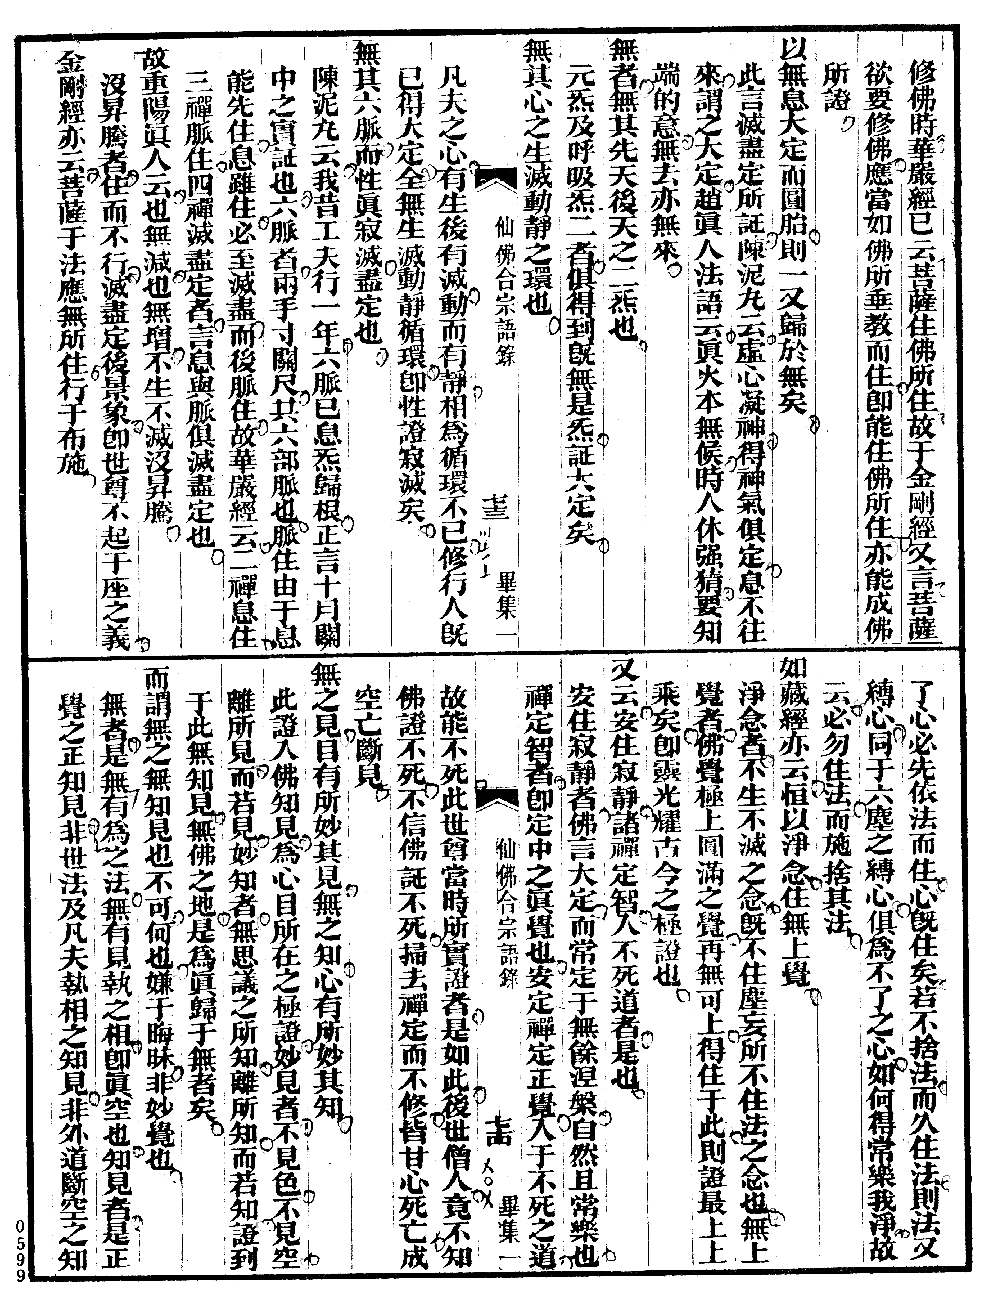 修佛時華嚴經已云菩薩住佛所住故于金剛經又言菩薩
欲要修佛應當如佛所垂教而住卽能住佛所住亦能成佛
所證
以無息大定而圓胎則一又歸於無矣
此言滅盡定所証陳泥丸云虛心凝神得神氣俱定息不往
來謂之大定趙眞人法語云眞火本無候時人休强猜要知
端的意無去亦無來
無者無其先天後天之二炁也
元炁及呼吸炁二者俱得到旣無是炁証大定矣
無其心之生滅動靜之環也
仙佛合宗語錄
畢集一
凡夫之心有生後有滅動而有靜相爲循環不已修行人旣
已得大定全無生滅動靜循環卽性證寂滅矣
無其六脈而性眞寂滅盡定也
陳泥丸云我昔工夫行一年六脈已息炁歸根正言十月關
中之實証也六脈者兩手寸關尺共六部脈也脈住由于息
能先住息雖住必至滅盡而後脈住故華嚴經云二禪息住
三禪脈住四禪滅盡定者言息與脈俱滅盡定也
故重陽眞人云也無減也無增不生不滅沒昇騰
沒昇騰者住而不行滅盡定後景象卽世尊不起于座之義
金剛經亦云菩薩于法應無所住行于布施
了心必先依法而住心旣住矣若不捨法而久住法則法又
縛心同于六塵之縛心俱爲不了之心如何得常樂我淨故
云必勿住法而施捨其法
如藏經亦云恒以淨念住無上覺
淨念者不生不滅之念旣不住塵妄所不住法之念也無上
覺者佛覺極上圓滿之覺再無可上得住于此則證最上上
乘矣卽靈光耀古今之極證也
又云安住寂靜諸禪定智人不死道者是也
安住寂靜者佛言大定而常定于無餘涅槃自然且常樂也
禪定智者卽定中之眞覺也安定禪定正覺入于不死之道
仙佛合宗語錄
畢集一
故能不死此世尊當時所實證者是如此後世僧人竟不知
佛證不死不信佛証不死掃去禪定而不修皆甘心死亡成
空亡斷見
無之見目有所妙其見無之知心有所妙其知
此證入佛知見爲心目所在之極證妙見者不見色不見空
離所見而若見妙知者無思議之所知離所知而若知證到
于此無知見無佛之地是爲眞歸于無者矣
而謂無之無知見也不可何也嫌于晦昧非妙覺也
無者是無有爲之法無有見執之相卽眞空也知見者是正
覺之正知見非世法及凡夫執相之知見非外道斷空之知
0599